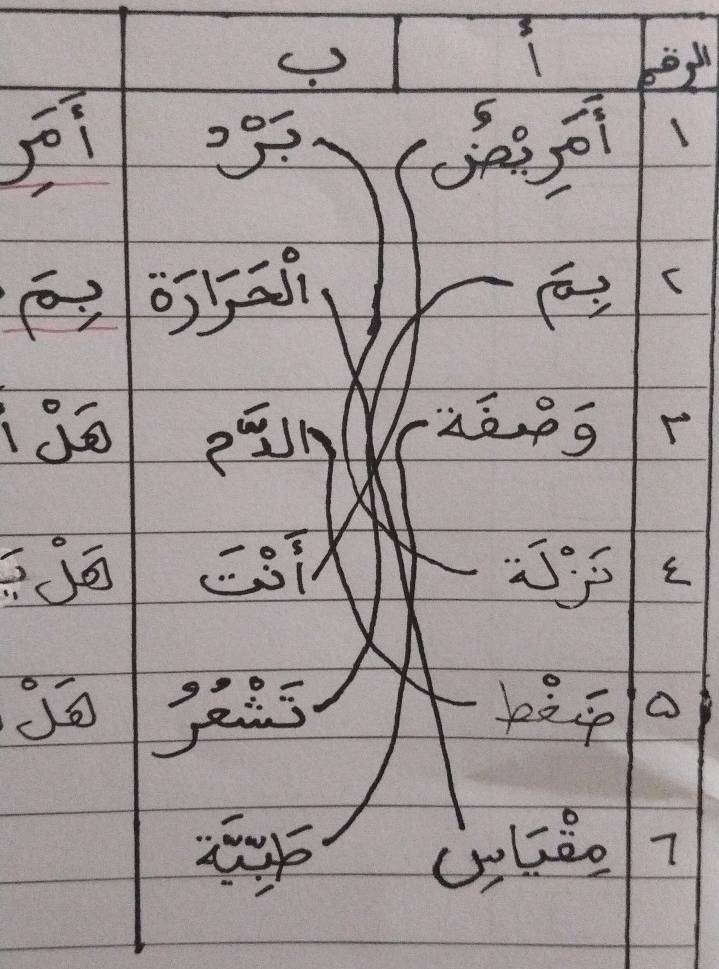 الرقم أ ب
١ أَمَرِيْضٌ بَرْد أَمَرِ
٢ بِمَ الْحَرَارَة بِمَ
٣ وَصْفَة الدَّم هَلْ
٤ نَزْلَة أَنْتَ هَلْ
٥ ضَغْط تَشْعُرُ هَلْ
٦ مِقْيَاسِ طَبِّيَّة